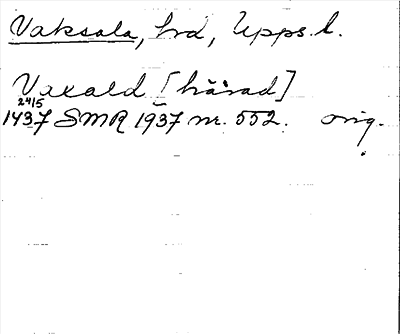 Vaksala, hrd, Upps. l.
Vaxald [härad]
24/5
1437 SMR 1937 nr. 552. orig.